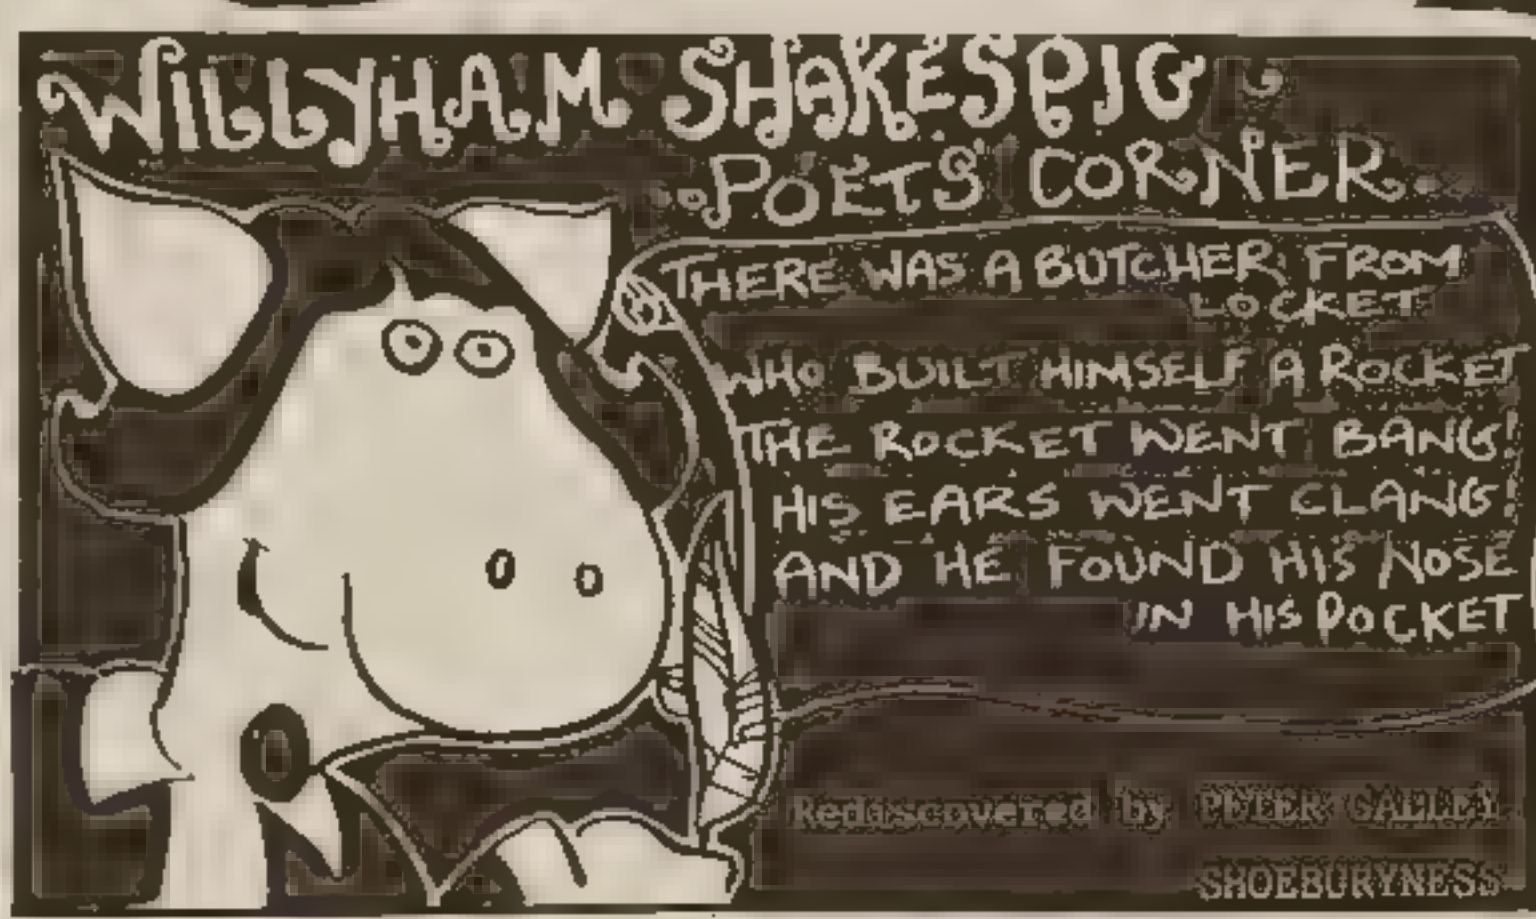 WILLYHAM SHAKESPIG
POETS CORNER
THERE WAS A BUTCHER FROM
LOCKET
WHO BUILT HIMSELF A ROCKET
THE ROCKET WENT BANG!
HIS EARS WENT CLANG!
AND HE FOUND HIS NOSE
IN HIS POCKET
Rediscovered by PETER GALLEY
SHOEBURYNESS